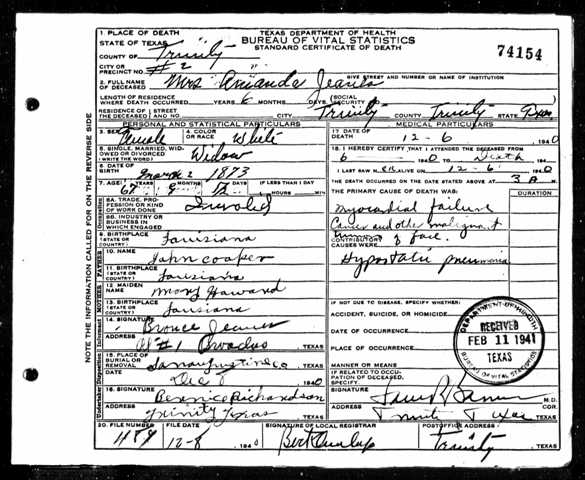 TEXAS DEPARTMENT OF HEALTH
BUREAU OF VITAL STATISTICS
STANDARD CERTIFICATE OF DEATH
74154
1. PLACE OF DEATH
STATE OF TEXAS
COUNTY OF Trinity
CITY OR PRECINCT NO. #2
GIVE STREET AND NUMBER OR NAME OF INSTITUTION
2. FULL NAME OF DECEASED Mrs Amanda
LENGTH OF RESIDENCE WHERE DEATH OCCURRED YEARS 6 MONTHS DAYS (SOCIAL SECURITY
RESIDENCE OF THE DECEASED STREET CITY Trinity COUNTY Trinity STATE Texas
PERSONAL AND STATISTICAL PARTICULARS
3. SEX Female 4. COLOR OR RACE White
5. SINGLE, MARRIED, WIDOWED OR DIVORCED (WRITE THE WORD) Widow
6. DATE OF BIRTH March 2 1873
7. AGE 67 YEARS 9 MONTHS DAYS IF LESS THAN 1 DAY HOURS MIN
8A. TRADE, PROFESSION OR KIND OF WORK DONE Invalid
8B. INDUSTRY OR BUSINESS IN WHICH ENGAGED
9. BIRTHPLACE (STATE OR COUNTRY) Louisiana
10. NAME John Cooper
11. BIRTHPLACE (STATE OR COUNTRY) Louisiana
12. MAIDEN NAME Mary Howard
13. BIRTHPLACE (STATE OR COUNTRY) Louisiana
14. SIGNATURE
ADDRESS R #1 Broadus, TEXAS
15. PLACE OF BURIAL OR REMOVAL Sanaugustine Co, TEXAS
DATE Dec 8 1940
16. SIGNATURE Bernice Richardson
Trinity Texas TEXAS
MEDICAL PARTICULARS
17. DATE OF DEATH 12-6 1940
18. I HEREBY CERTIFY THAT I ATTENDED THE DECEASED FROM
6 1940 TO Death 194
I LAST SAW H ER ALIVE ON 12-6 1940
THE DEATH OCCURRED ON THE DATE STATED ABOVE AT 3 A M.
THE PRIMARY CAUSE OF DEATH WAS: DURATION
Myocardial failure
Cancer and other malignant
tumors of face.
CONTRIBUTORY CAUSES WERE
Hypostatic pneumonia
IF NOT DUE TO DISEASE, SPECIFY WHETHER:
ACCIDENT, SUICIDE, OR HOMICIDE
DATE OF OCCURRENCE
PLACE OF OCCURRENCE
IF RELATED TO OCCUPATION OF DECEASED, SPECIFY
SIGNATURE M.D. COR.
Trinity Texas TEXAS
DEPARTMENT OF HEALTH
RECEIVED
FEB 11 1941
TEXAS
BUREAU OF VITAL STATISTICS
20. FILE NUMBER 489
FILE DATE 12-8 1940
SIGNATURE OF LOCAL REGISTRAR Bert Dunlap
POSTOFFICE ADDRESS Trinity, TEXAS
NOTE THE INFORMATION CALLED FOR ON THE REVERSE SIDE